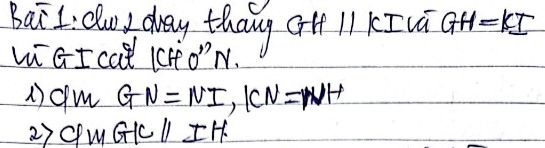 Bài 1: cho 2 đoạn thẳng GH // KI và GH = KI
và GI cắt KH ở N.
1) CM GN = NI, KN = NH
2) CM GK // IH.